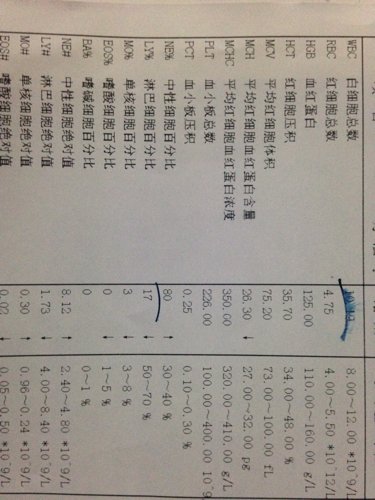 WBC 白细胞总数 8.00~12.00 *10^9/L
RBC 红细胞总数 4.75 4.00~5.50 *10^12/L
HGB 血红蛋白 125.00 110.00~160.00 g/L
HCT 红细胞压积 35.70 34.00~48.00 %
MCV 平均红细胞体积 75.20 73.00~100.00 fL
MCH 平均红细胞血红蛋白含量 26.30 ↓ 27.00~32.00 pg
MCHC 平均红细胞血红蛋白浓度 350.00 320.00~410.00 g/L
PLT 血小板总数 226.00 100.00~400.00 10^9
PCT 血小板压积 0.25 0.10~0.30 %
NE% 中性细胞百分比 80 ↑ 30~40 %
LY% 淋巴细胞百分比 17 ↓ 50~70 %
MO% 单核细胞百分比 3 3~8 %
EOS% 嗜酸细胞百分比 0 ↓ 1~5 %
BA% 嗜碱细胞百分比 0 0~1 %
NE# 中性细胞绝对值 8.12 ↑ 2.40~4.80 *10^9/L
LY# 淋巴细胞绝对值 1.73 ↓ 4.00~8.40 *10^9/L
MO# 单核细胞绝对值 0.30 ↑ 0.96~0.24 *10^9/L
EOS# 嗜酸细胞绝对值 0.02 ↓ 0.05~0.50 *10^9/L